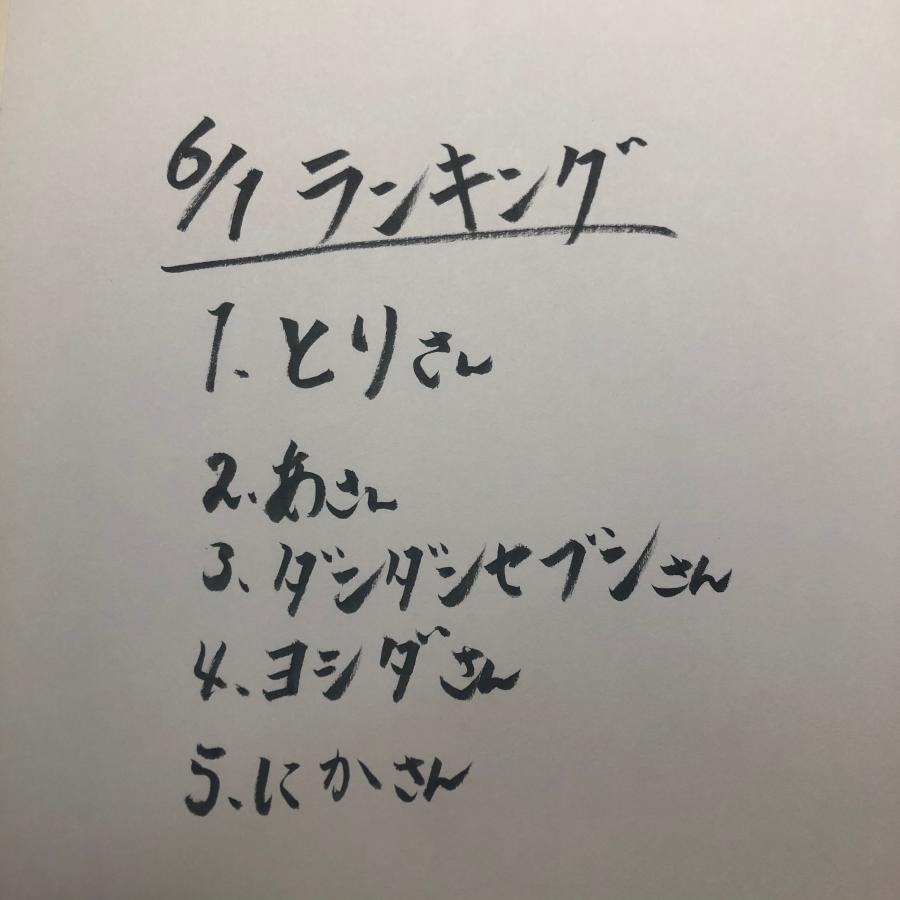 6/1 ランキング
1. とりさん
2. あさん
3、ダンダンセブンさん
4、ヨシダさん
5、にかさん